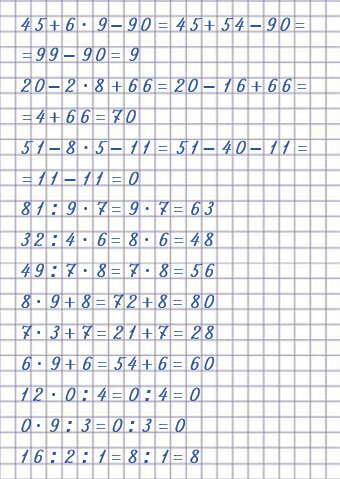 45+6· 9-90 = 45+54-90=
=99-90= 9
20-2 ·8+66=20- 16+66=
=4+66=70
51-8·5-11=51-40-11 =
=11-11 =0
81:9·7=9·7=63
32:4·6=8·6=48
49:7·8=7·8=56
8·9+8=72+8=80
7·3+7=21+7=28
6·9+6=54+6=60
12·0:4=0:4=0
0·9:3=0:3=0
16:2:1=8:1=8